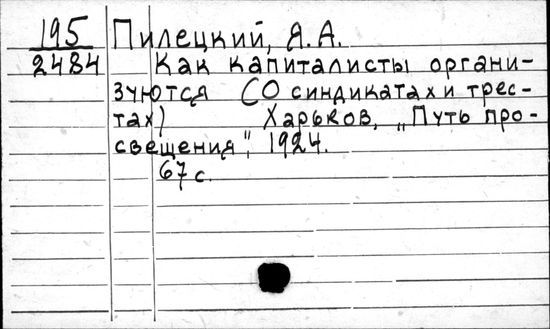 195 Пилецкий, Я.А.
2484 Как капиталисты органи-
зуются (О синдикатах и трес-
тах) Харьков, „Путь про-
свещения", 1924.
67 с.